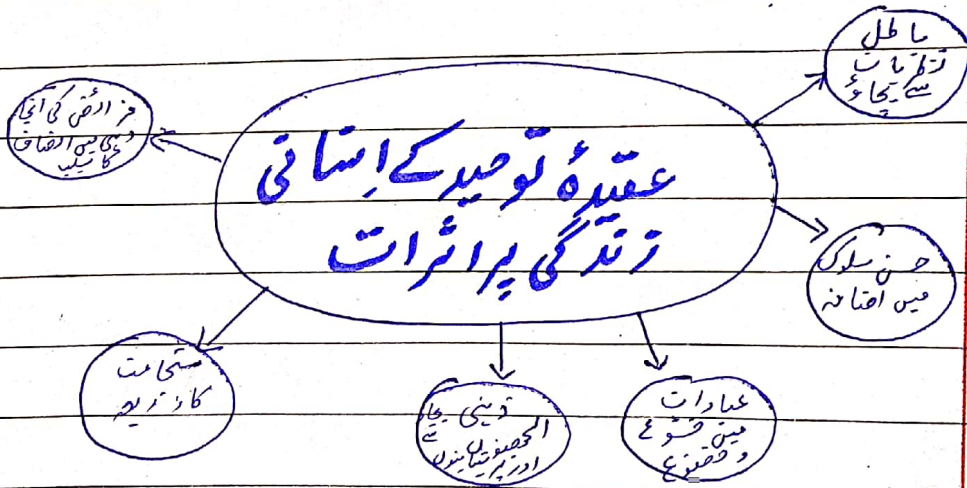 عقیدۂ توحید کے انسانی
زندگی پر اثرات
باطل
نظریات
سے بچاؤ
حسن سلوک
میں اضافہ
عبادات
میں خشوع
و خضوع
ذہنی
الجھنوں
اور پریشانیوں
سے بچاؤ
شجاعت
کا ذریعہ
فرائض کی انجام
دہی میں انصاف
کا